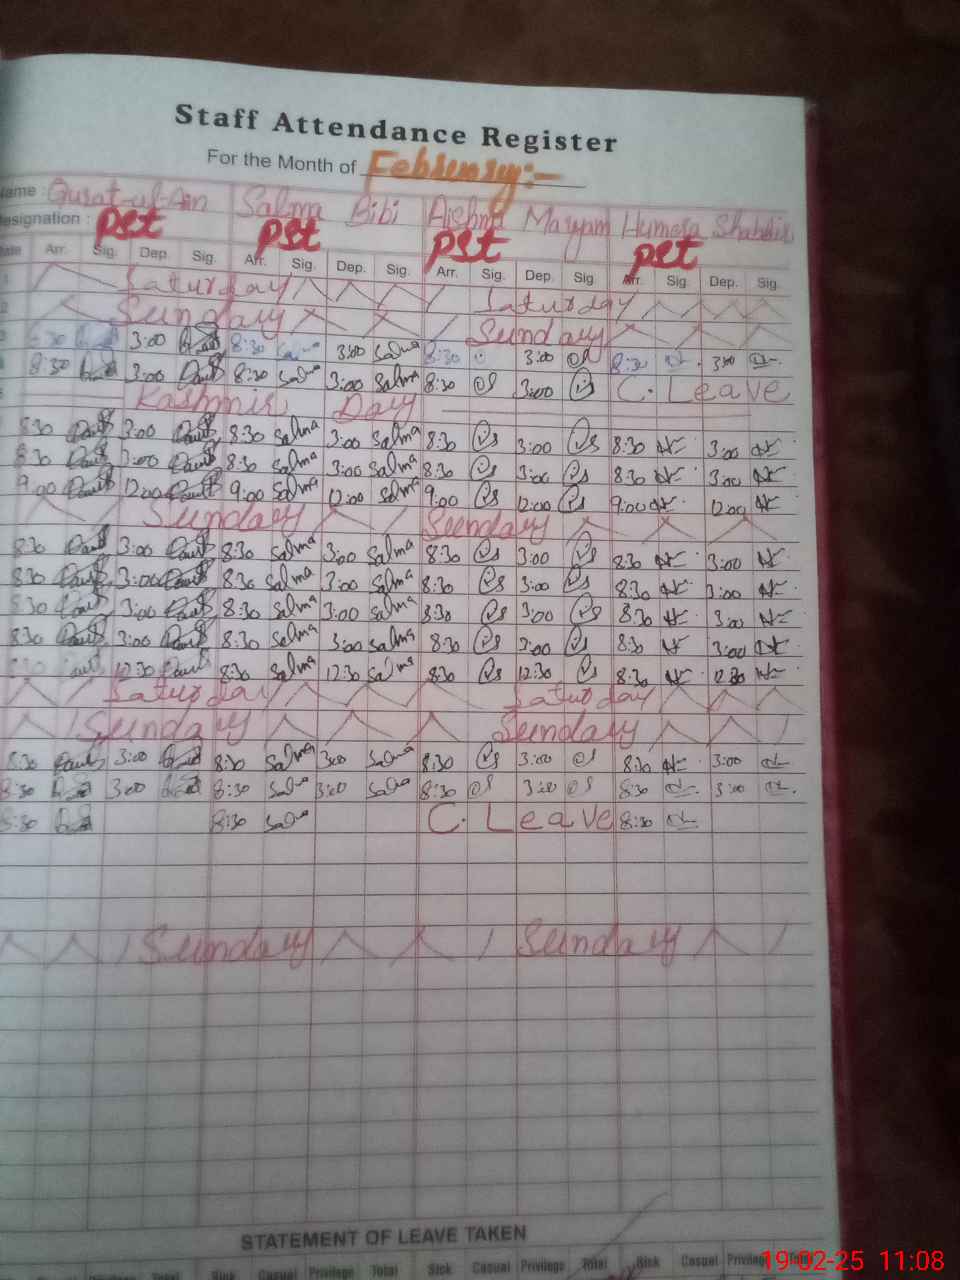 Staff Attendance Register
For the Month of February:-
Name : Qurat-ul-Ain Salma Bibi Aishma Maryam Humera
Designation : PST PST PST PST
Date Arr. Sig. Dep. Sig. Arr. Sig. Dep. Sig. Arr. Sig. Dep. Sig. Arr. Sig. Dep. Sig.
1 Saturday Saturday
2 Sunday Sunday
3 8:30 3:00 8:30 Salma 3:00 Salma 8:30 3:00 8:30 3:00
8:30 3:00 8:30 Salma 3:00 Salma 8:30 3:00 C. Leave
Kashmir Day
8:30 3:00 8:30 Salma 3:00 Salma 8:30 3:00 8:30 3:00
8:30 3:00 8:30 Salma 3:00 Salma 8:30 3:00 8:30 3:00
9:00 12:00 9:00 Salma 12:00 Salma 9:00 12:00 9:00 12:00
Sunday Sunday
8:30 3:00 8:30 Salma 3:00 Salma 8:30 3:00 8:30 3:00
8:30 3:00 8:30 Salma 3:00 Salma 8:30 3:00 8:30 3:00
8:30 3:00 8:30 Salma 3:00 Salma 8:30 3:00 8:30 3:00
8:30 3:00 8:30 Salma 3:00 Salma 8:30 3:00 8:30 3:00
8:30 12:30 8:30 Salma 12:30 Salma 8:30 12:30 8:30 12:30
Saturday Saturday
Sunday Sunday
8:30 3:00 8:30 Salma 3:00 Salma 8:30 3:00 8:30 3:00
8:30 3:00 8:30 Salma 3:00 Salma 8:30 3:00 8:30 3:00
8:30 8:30 Salma C. Leave 8:30
Sunday Sunday
STATEMENT OF LEAVE TAKEN
Privilege Total Sick Casual Privilege Total Sick Casual Privilege Total Sick Casual Privilege Total
19-02-25 11:08